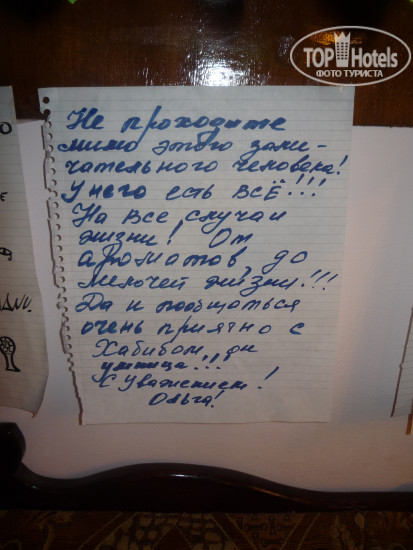 TOP Hotels
ФОТО ТУРИСТА
Не проходите
мимо этого заме-
чательного человека!
У него есть ВСЁ!!!
На все случаи
жизни! От
ароматов, до
мелочей жизни!!!
Да и пообщаться
очень приятно с
Хабибом, он
умница!!!
С уважением!
Ольга!